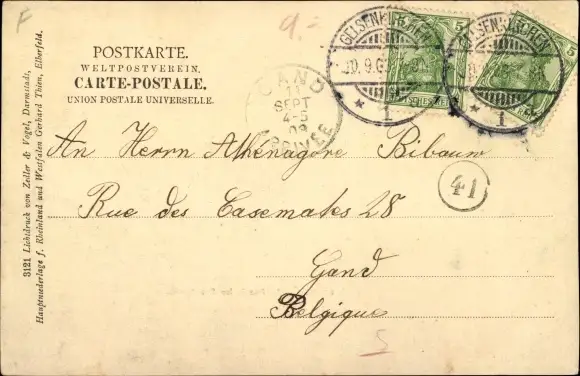 F
9.-
POSTKARTE.
WELTPOSTVEREIN.
CARTE-POSTALE.
UNION POSTALE UNIVERSELLE.
GELSENKIRCHEN
1
5
5
GELSENKIRCHEN
1
GAND
11
SEPT
4-5
09
An Herrn Athénagore Bibauw
41
Rue des Casemates 28
Gand
Belgique
5
3121 Lichtdruck von Zedler & Vogel, Darmstadt,
Hauptniederlage f. Rheinland und Westfalen Gerhard Thien, Elberfeld.